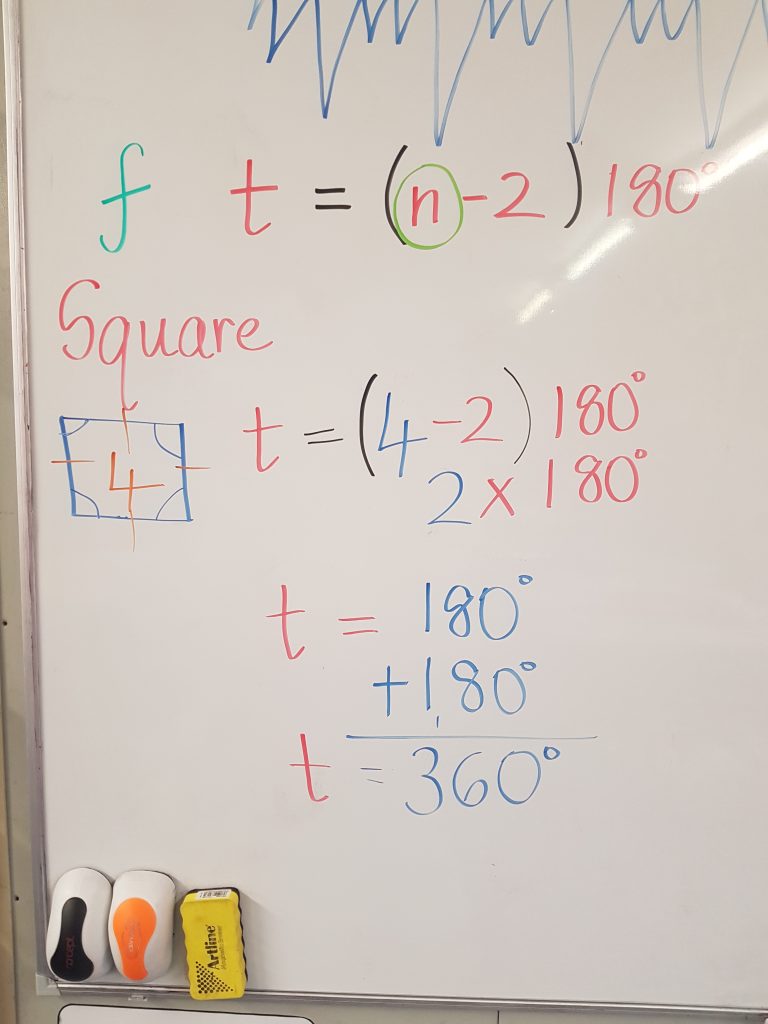 f t = (n-2) 180°
Square
4
t = (4-2) 180°
2 x 180°
t = 180°
+180°
t = 360°
Artline